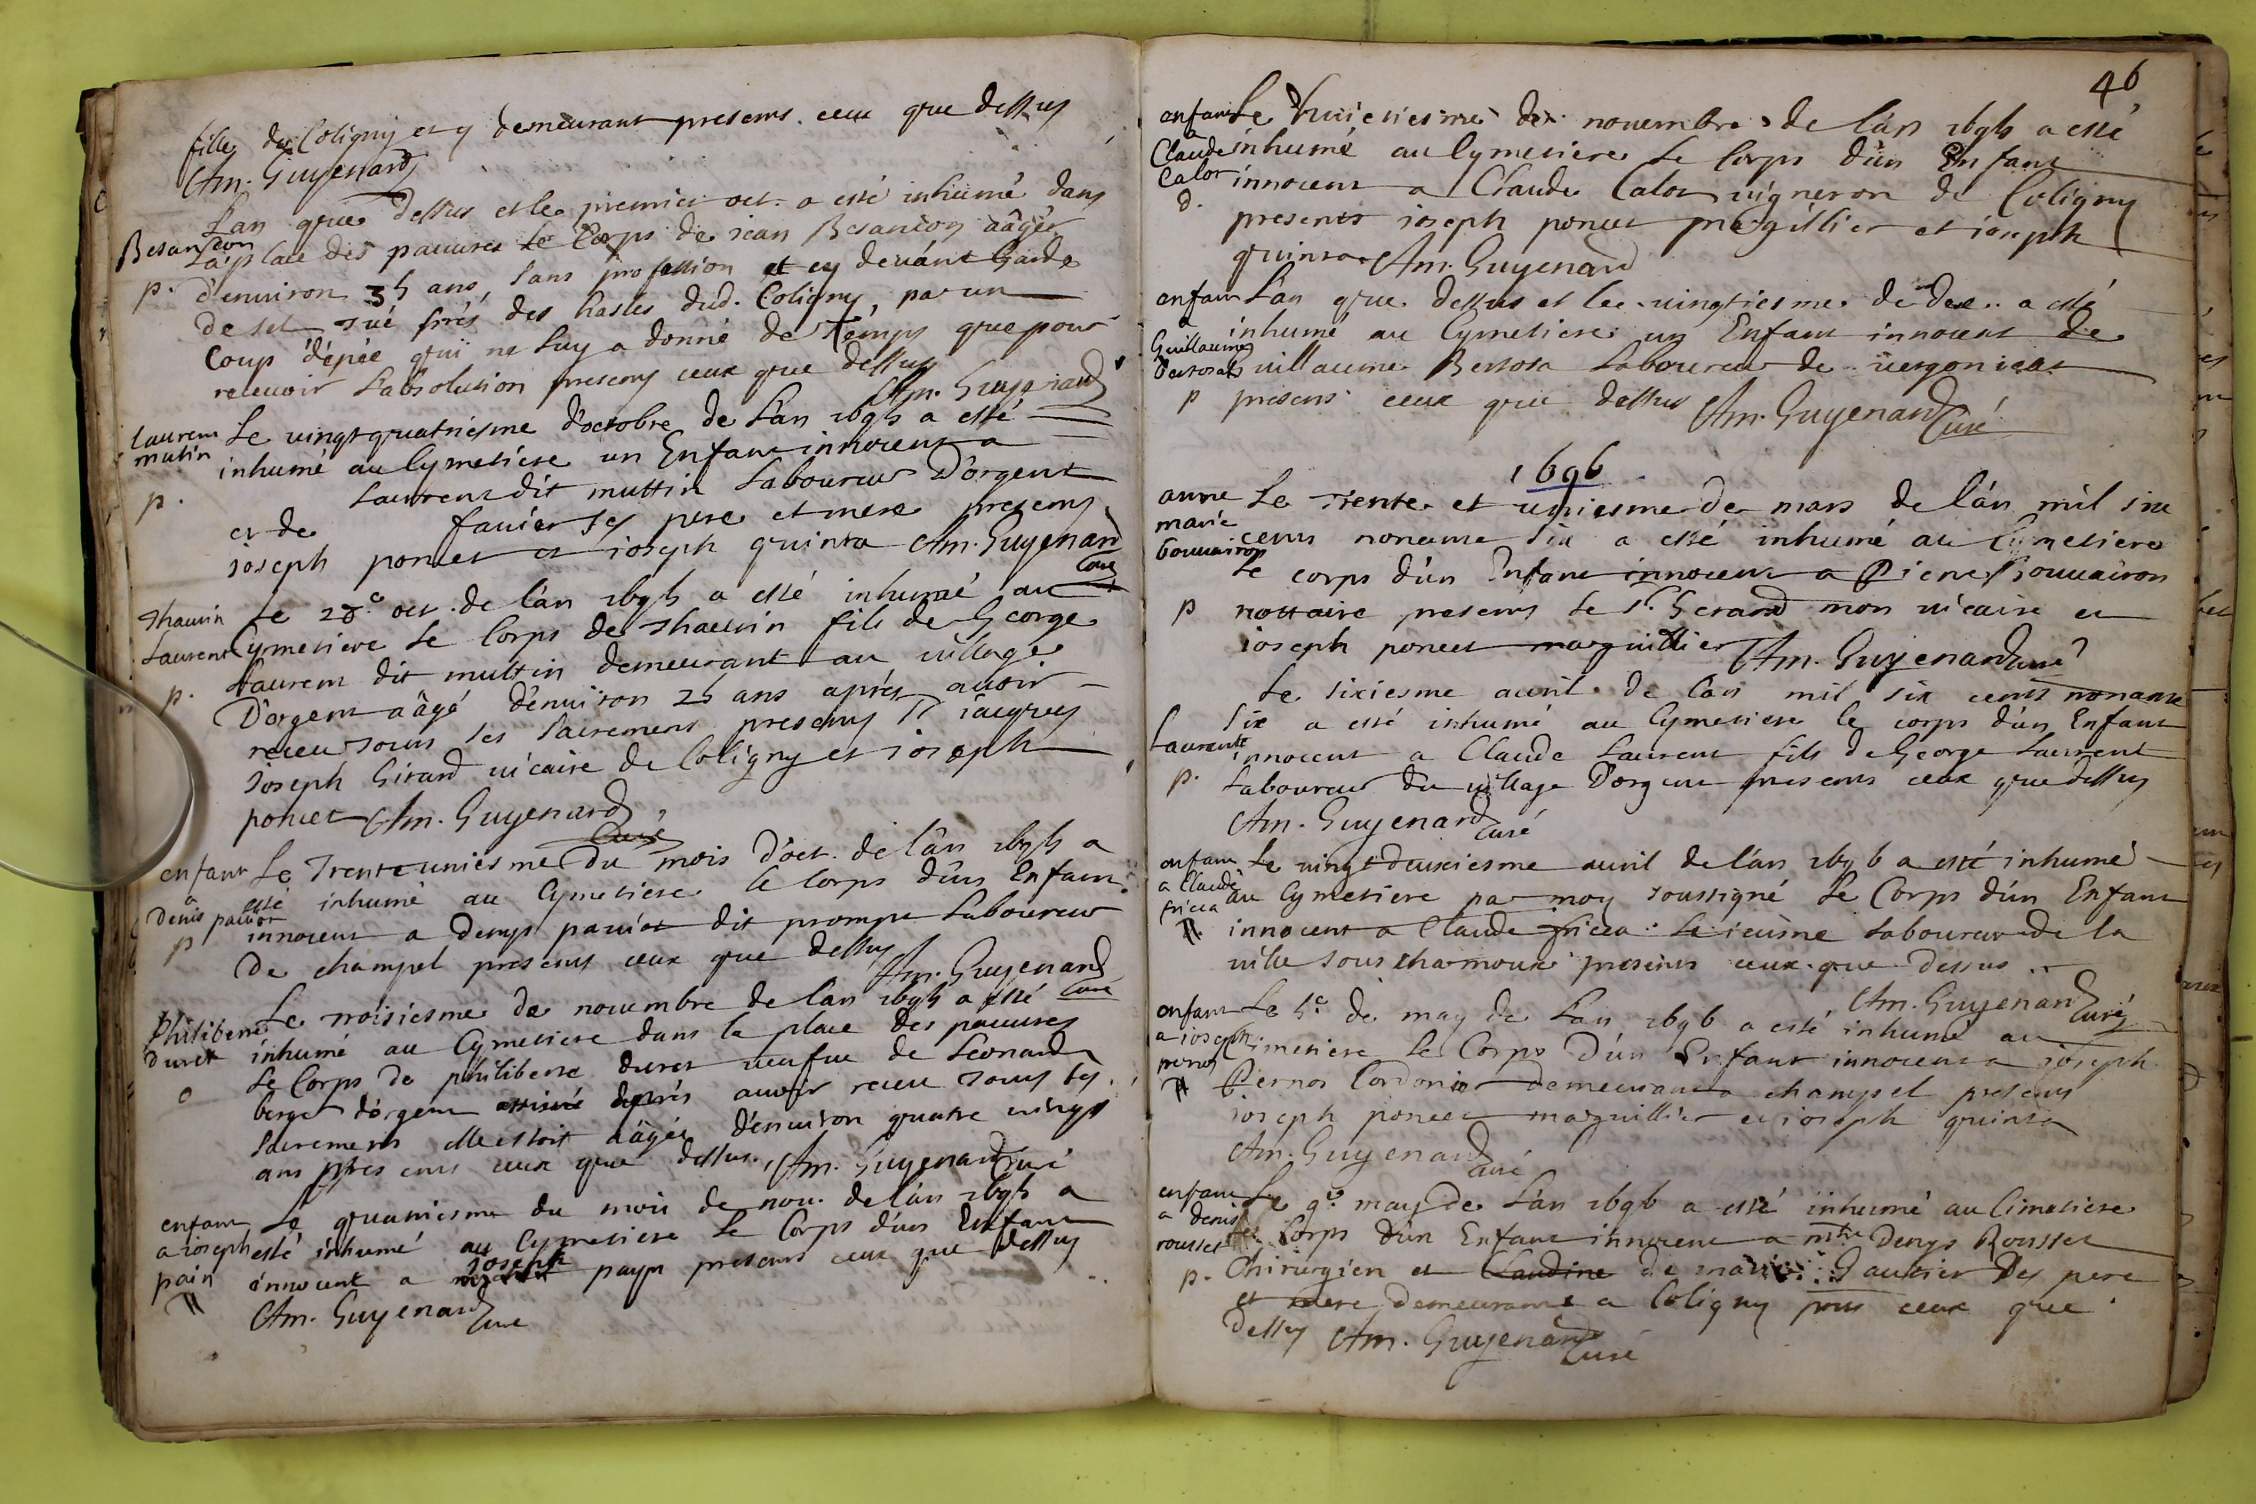 fille de Coligny et y demeurant presens ceux que dessus
Am. Guyenard
L'an que dessus et le premier oct. a esté inhumé dans
Besancon
la place des pauures le Corps de jean Besancon aâgé
p.
d'enuiron 35 ans, sans profession et cy deuánt Garde
de sel tué prés des hasles dud. Coligny, par un
Coup d'épée qui ne luy a donné de temps que pour
receuoir l'absolution presens ceux que dessus
Am. Guyenard
laurent
mutin
p.
Le vingtquatriesme d'octobre de l'an 1695 a esté
inhumé au Cymetiere un Enfant innocent a
Laurent dit muttin Laboureur D'orgent
et de fauier ses pere et mere presens
joseph poncet et ioseph quinta Am. Guyenard
Curé
Thauin
Laurent
p.
Le 28e oct. de l'an 1695 a esté inhumé au
Cymetiere le Corps de Thauin fils de George
Laurent dit muttin demeurant au uillage
D'orgent aâgé d'enuiron 25 ans aprés auoir
receu tous ses Sacrements presens iacques
Joseph Girard uicaire de Coligny et ioseph
poncet Am. Guyenard
Curé
enfant
a
Denis pauiot
p
Le Trente uniesme Du mois D'oct. de l'an 1695 a
esté inhumé au Cymetiere le Corps d'un Enfant
innocent a Denys pauiot dit prompt Laboureur
De champel presens ceux que dessus
Am. Guyenard
Curé
philiberte
duret
Le troisiesme de nouembre de l'an 1695 a esté
inhumé au Cymetiere dans la place Des pauures
Le Corps de philiberte duret ueufue de Leonard
berger d'orgent aprés auoir receu tous les
Sacrements elle estoit aâgée d'enuiron quatre uingt
ans presens ceux que dessus. Am. Guyenard Curé
enfant
a ioseph
pain
Le quatriesme du mois de nou. de l'an 1695 a
esté inhumé au Cymetiere le Corps d'un Enfant
innocent a joseph payn presens ceux que dessus
Am. Guyenard
Curé
46
enfant
a
Claude
Calot
d.
Le huictiesme de nouembre de l'an 1695 a esté
inhumé au Cymetiere Le Corps d'un Enfant
innocent a Claude Calot uigneron de Coligny
presents ioseph poncet marguillier et ioseph
quinta Am. Guyenard
enfant
a
Guillaume
bertorat
p
L'an que dessus et le uingtiesme de dec. a esté
inhumé au Cymetiere un Enfant innocent de
Guillaume Bertora Laboureur de uergongeat
presens ceux que dessus Am. Guyenard
Curé
1696
anne
marie
bouuairon
p
Le trente et uniesme de mars de l'an mil six
cents nonante six a esté inhumé au Cymetiere
Le corps d'un Enfant innocent a Pierre Bouuairon
nottaire presens le Sr. Gerard mon uicaire et
ioseph poncet marguillier Am. Guyenard curé
Laurent
p.
Le sixiesme auril de l'an mil six cents nonante
six a esté inhumé au Cymetiere le corps d'un Enfant
innocent a Claude Laurent fils de George Laurent
Laboureur du uillage D'orgent presens ceux que dessus
Am. Guyenard
Curé
enfant
a Claude
fricca
Le uingt deuxiesme auril de l'an 1696 a esté inhumé
au Cymetiere par moy soussigné Le Corps d'un Enfant
innocent a Claude fricca Le ieusne Laboureur de la
uille sous charmoux presents ceux que dessus
Am. Guyenard
Curé
enfant
a ioseph
pernot
Le 5e de may de L'an 1696 a esté inhumé au
Cimetiere Le Corps D'un Enfant innocent a joseph
Pernot Cordonier demeurant a champel presens
joseph poncet marguillier et ioseph quinta
Am. Guyenard
curé
enfant
a denis
rousset
p.
Le 9e may de L'an 1696 a esté inhumé au Cimetiere
Le Corps d'un Enfant innocent a mtre Denys Rousset
Chirurgien et Claudine de marie Gautier Des pere
et mere demeurants a Coligny pnts ceux que
dessus Am. Guyenard
Curé